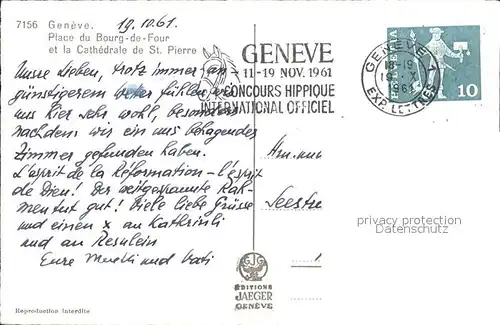 7156 Genève. 19.10.61.
Place du Bourg-de-Four
et la Cathédrale de St. Pierre
Unsre Lieben, trotz immer un-
günstigerem Wetter fühlen wir
uns hier sehr wohl, besonders
nachdem wir ein uns behagendes
Zimmer gefunden haben.
L'esprit de la Réformation - l'esprit
de Dieu! Der zeitgesamte Rah-
men tut gut! Viele liebe Grüsse
und einen x an Kathrinli
und an
Eure Mutti und Vati
Reproduction interdite
GENEVE
11-19 NOV. 1961
CONCOURS HIPPIQUE
INTERNATIONAL OFFICIEL
GENEVE 1
18-19
19. X.
1961
EXP. LETTRES
HELVETIA
10
Seestr
privacy protection
Datenschutz
ÉDITIONS
JAEGER
GENÈVE